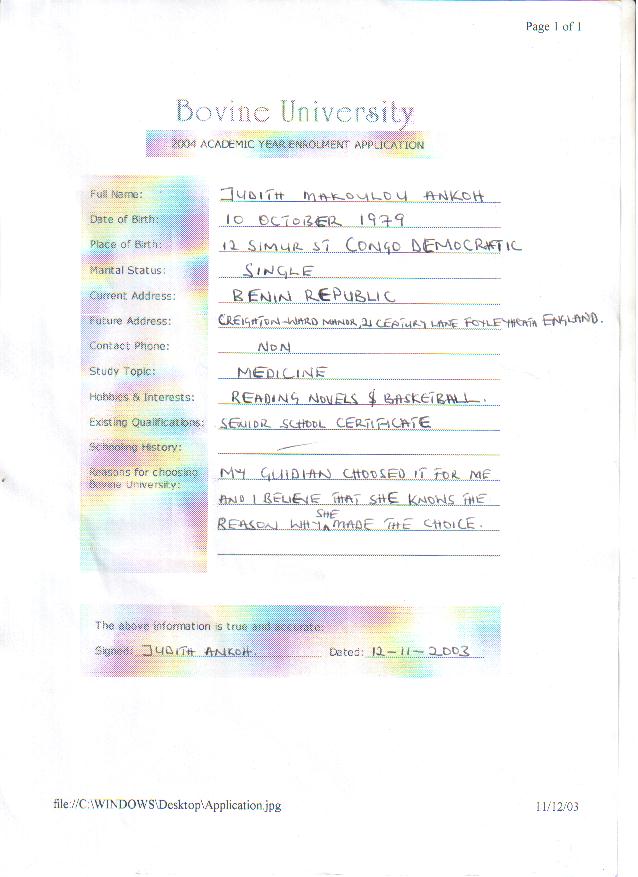 Page 1 of 1
Bovine University
2004 ACADEMIC YEAR ENROLMENT APPLICATION
Full Name: JUDITH MAKOULOU ANKOH
Date of Birth: 10 OCTOBER 1979
Place of Birth: 12 SIMUR ST CONGO DEMOCRATIC
Marital Status: SINGLE
Current Address: BENIN REPUBLIC
Future Address: CREIGHTON-WARD MANOR, 21 CENTURY LANE FOYLEYHEATH ENGLAND.
Contact Phone: NON
Study Topic: MEDICINE
Hobbies & Interests: READING NOVELS $ BASKETBALL.
Existing Qualifications: SENIOR SCHOOL CERTIFICATE
Schooling History: —
Reasons for choosing MY GUIDIAN CHOOSED IT FOR ME
Bovine University: AND I BELIEVE THAT SHE KNOWS THE
REASON WHY SHE MADE THE CHOICE.
The above information is true and accurate:
Signed: JUDITH ANKOH. Dated: 12-11-2003
file://C:\WINDOWS\Desktop\Application.jpg 11/12/03